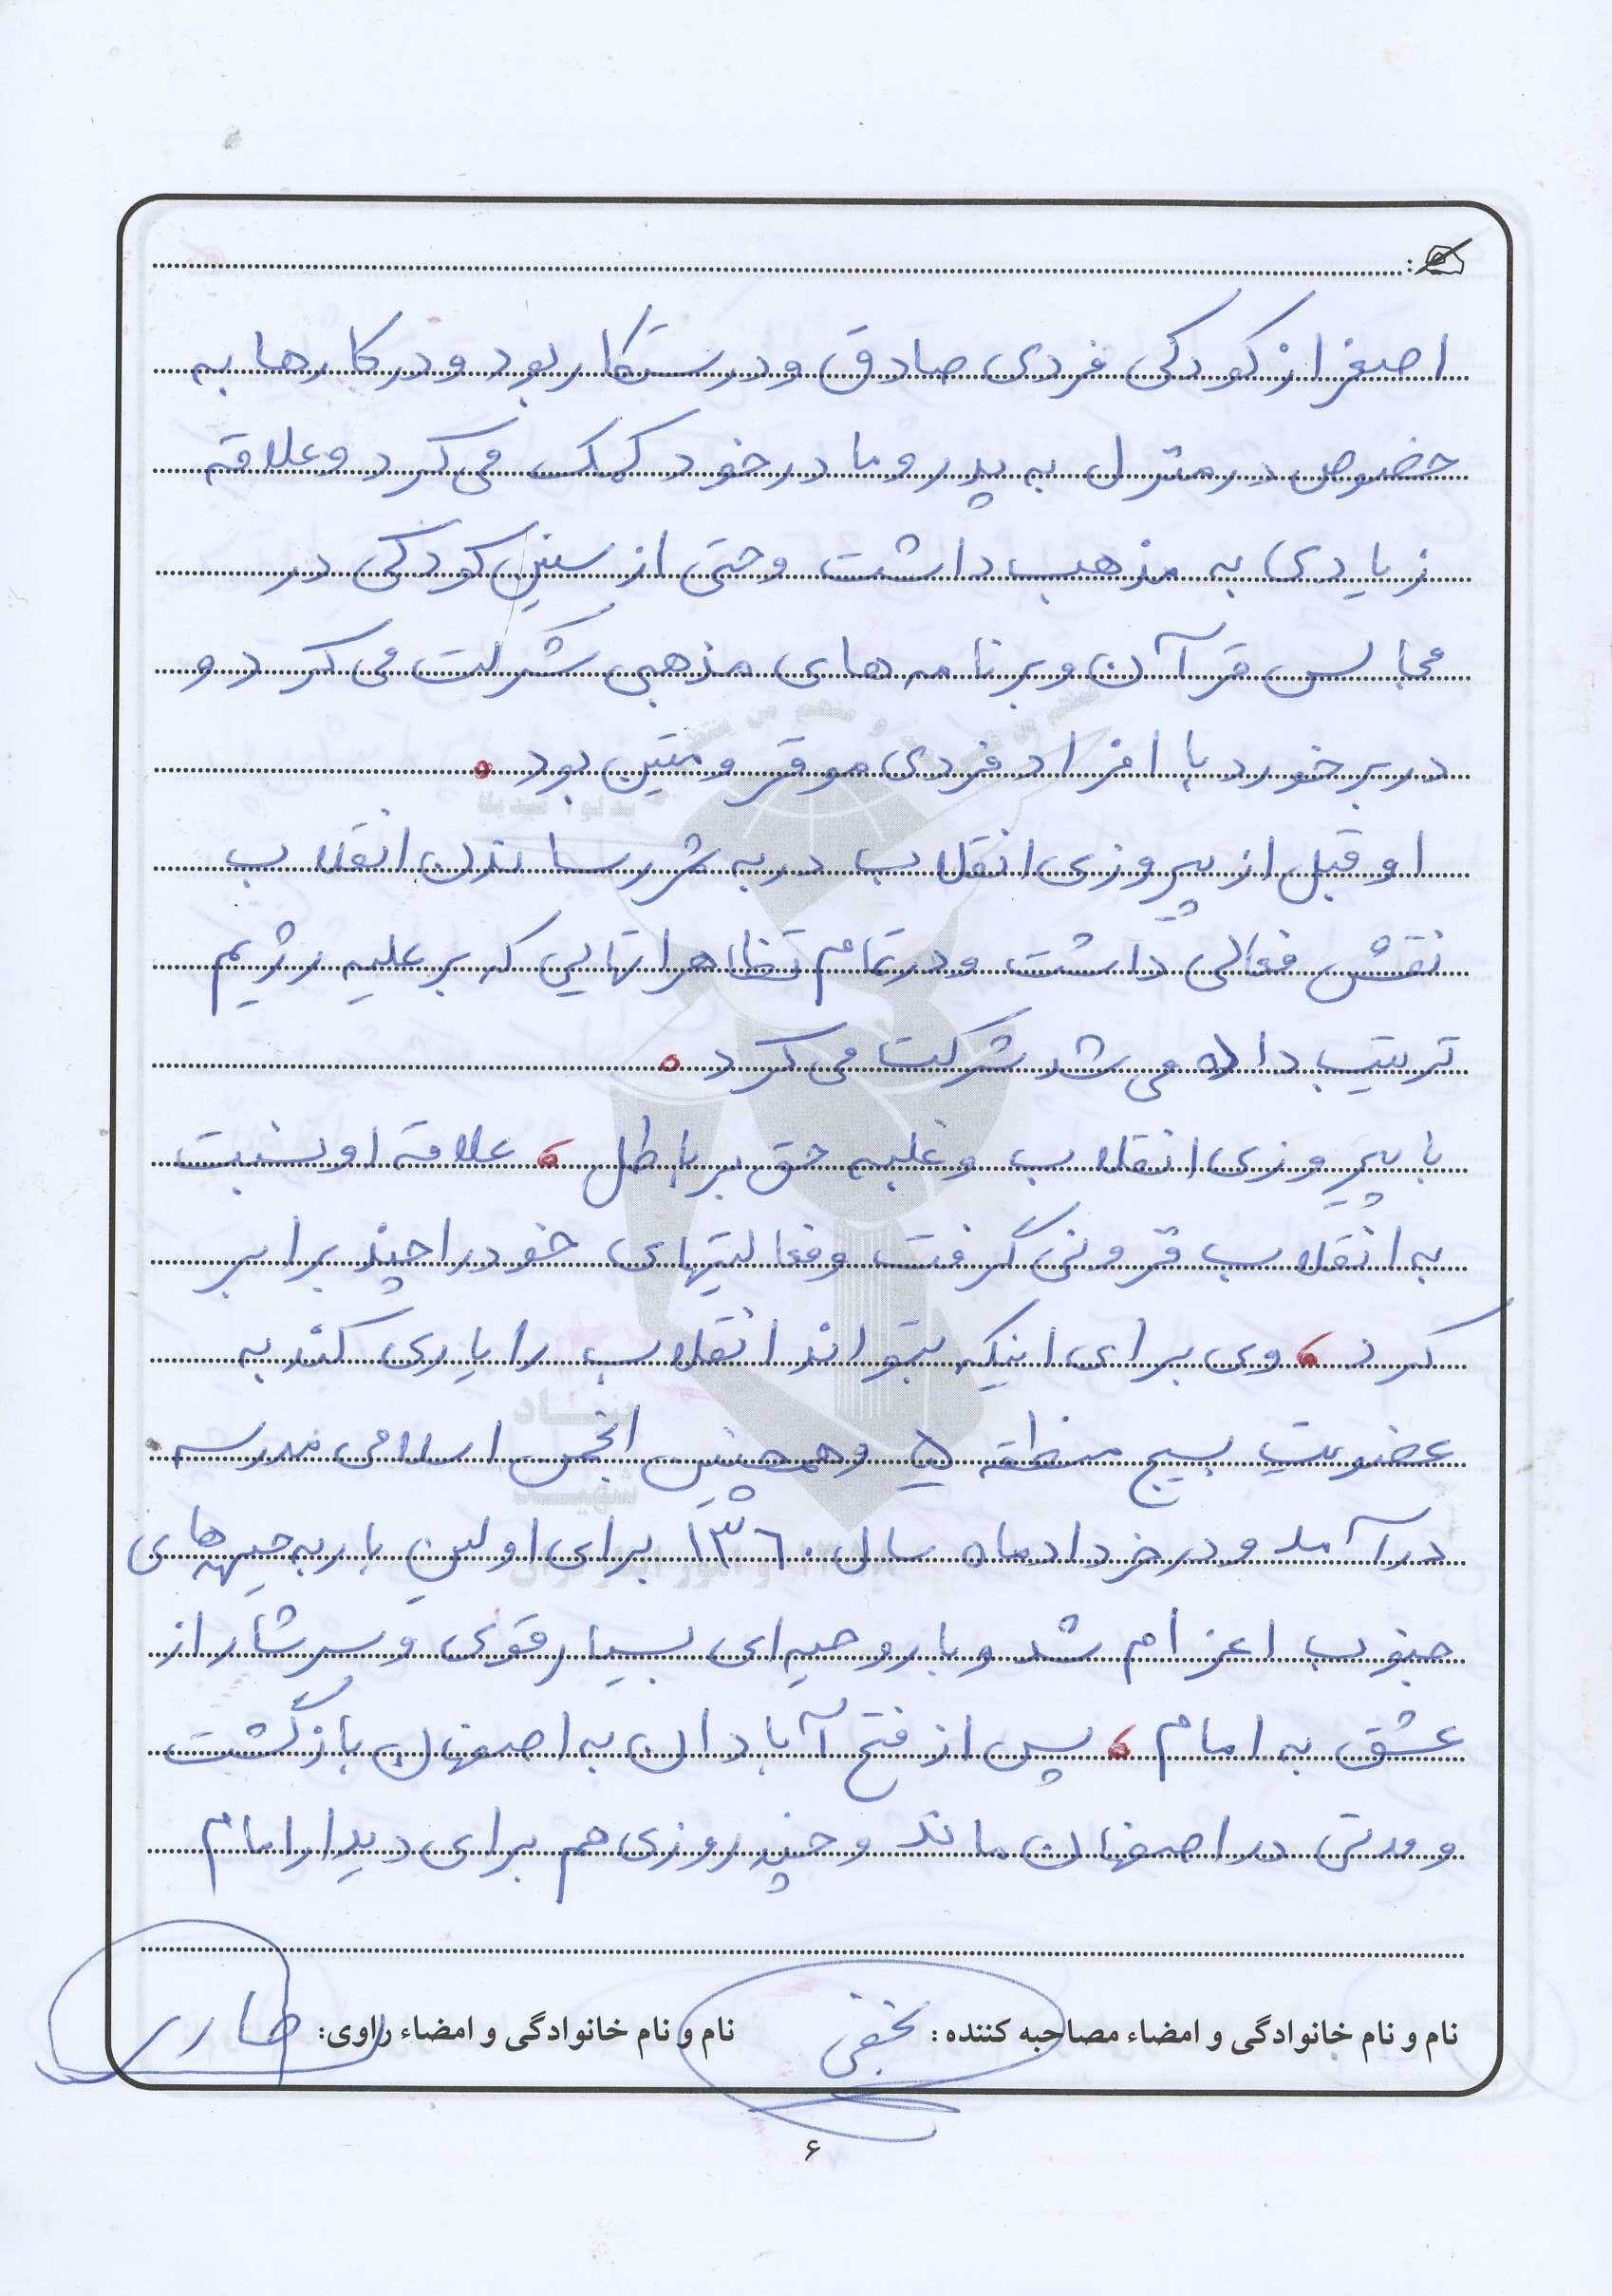 اصغر از کودکی فردی صادق و درستکار بود و در کارها به
خصوص در منزل به پدر و مادر خود کمک می کرد و علاقه
زیادی به مذهب داشت و حتی از سنین کودکی در
مجالس قرآن و برنامه های مذهبی شرکت می کرد و
در برخورد با افراد فردی موقر و متین بود .
او قبل از پیروزی انقلاب در به ثمر رساندن انقلاب
نقش فعالی داشت و در تمام تظاهراتهایی که بر علیه رژیم
ترتیب داده می شد شرکت می کرد .
با پیروزی انقلاب و غلبه حق بر باطل ، علاقه او نسبت
به انقلاب فزونی گرفت و فعالیتهای خود را چند برابر
کرد ، وی برای اینکه بتواند انقلاب را یاری کند به
عضویت بسیج منطقه ۵ و همچنین انجمن اسلامی مدرسه
درآمد و در خرداد ماه سال ۱۳۶۰ برای اولین بار به جبهه های
جنوب اعزام شد و با روحیه ای بسیار قوی و سرشار از
عشق به امام ، پس از فتح آبادان به اصفهان بازگشت
و مدتی در اصفهان ماند و چند روزی هم برای دیدار امام
نام و نام خانوادگی و امضاء مصاحبه کننده : نام و نام خانوادگی و امضاء راوی:
۶